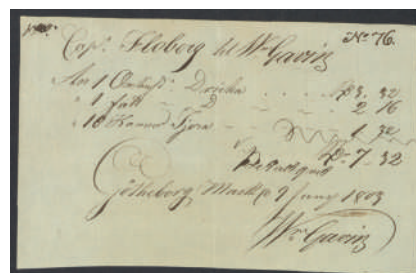 No 76.
Capt. Floberg til Wm Gavin
An 1 Dricka . . Rd 3. 32
" 1 fatt D - - - 2 16
" 10 Kannor Tjera - 1 32
Rd 7. 32
Betalt
Götheborg, 9 Juny 1803
Wm Gavin